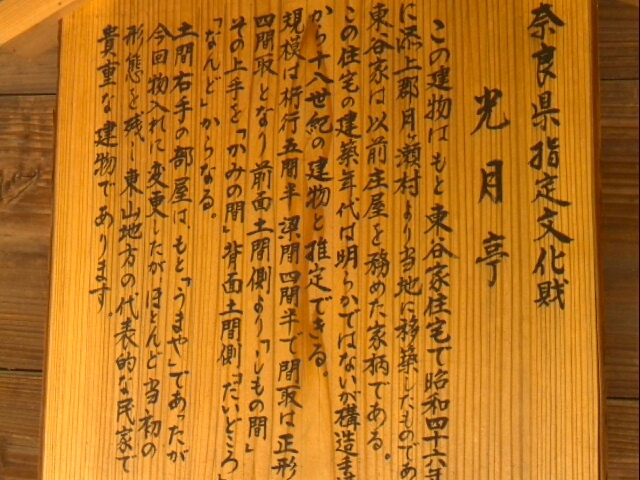 奈良県指定文化財
光月亭
この建物はもと東谷家住宅で昭和四十六年
に添上郡月ヶ瀬村より当地に移築したものであ
東谷家は以前庄屋を務めた家柄である。
この住宅の建築年代は明らかではないが構造手法
から十八世紀の建物と推定できる。
規模は桁行五間半梁間四間半で間取は正形
四間取となり前面土間側より「しもの間」
その上手を「かみの間」背面土間側「だいどころ」
「なんど」からなる。
土間右手の部屋は、もと「うまや」であったが
今回物入れに変更したがほとんど当初の
形態を残し東山地方の代表的な民家で
貴重な建物であります。